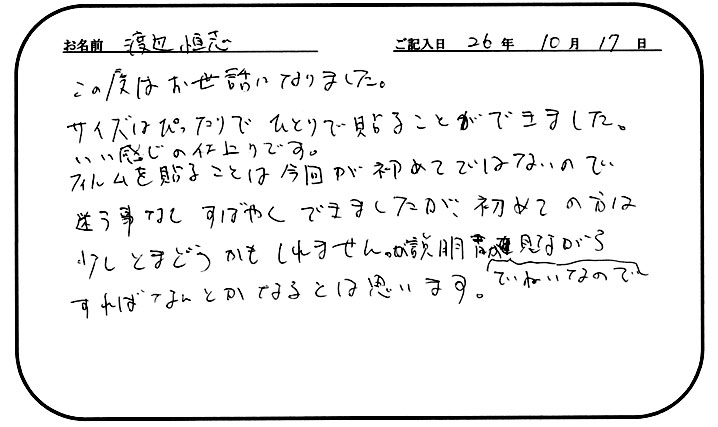 お名前 渡辺 恒志 ご記入日 26年 10月 17日
この度はお世話になりました。
サイズはぴったりで ひとりで貼ることができました。
いい感じの仕上りです。
フィルムを貼ることは今回が初めてではないので
迷う事なく すばやく できましたが、初めての方は
少しとまどうかもしれません。が説明書が 見ながら
ていねいなので
すればなんとかなるとは思います。